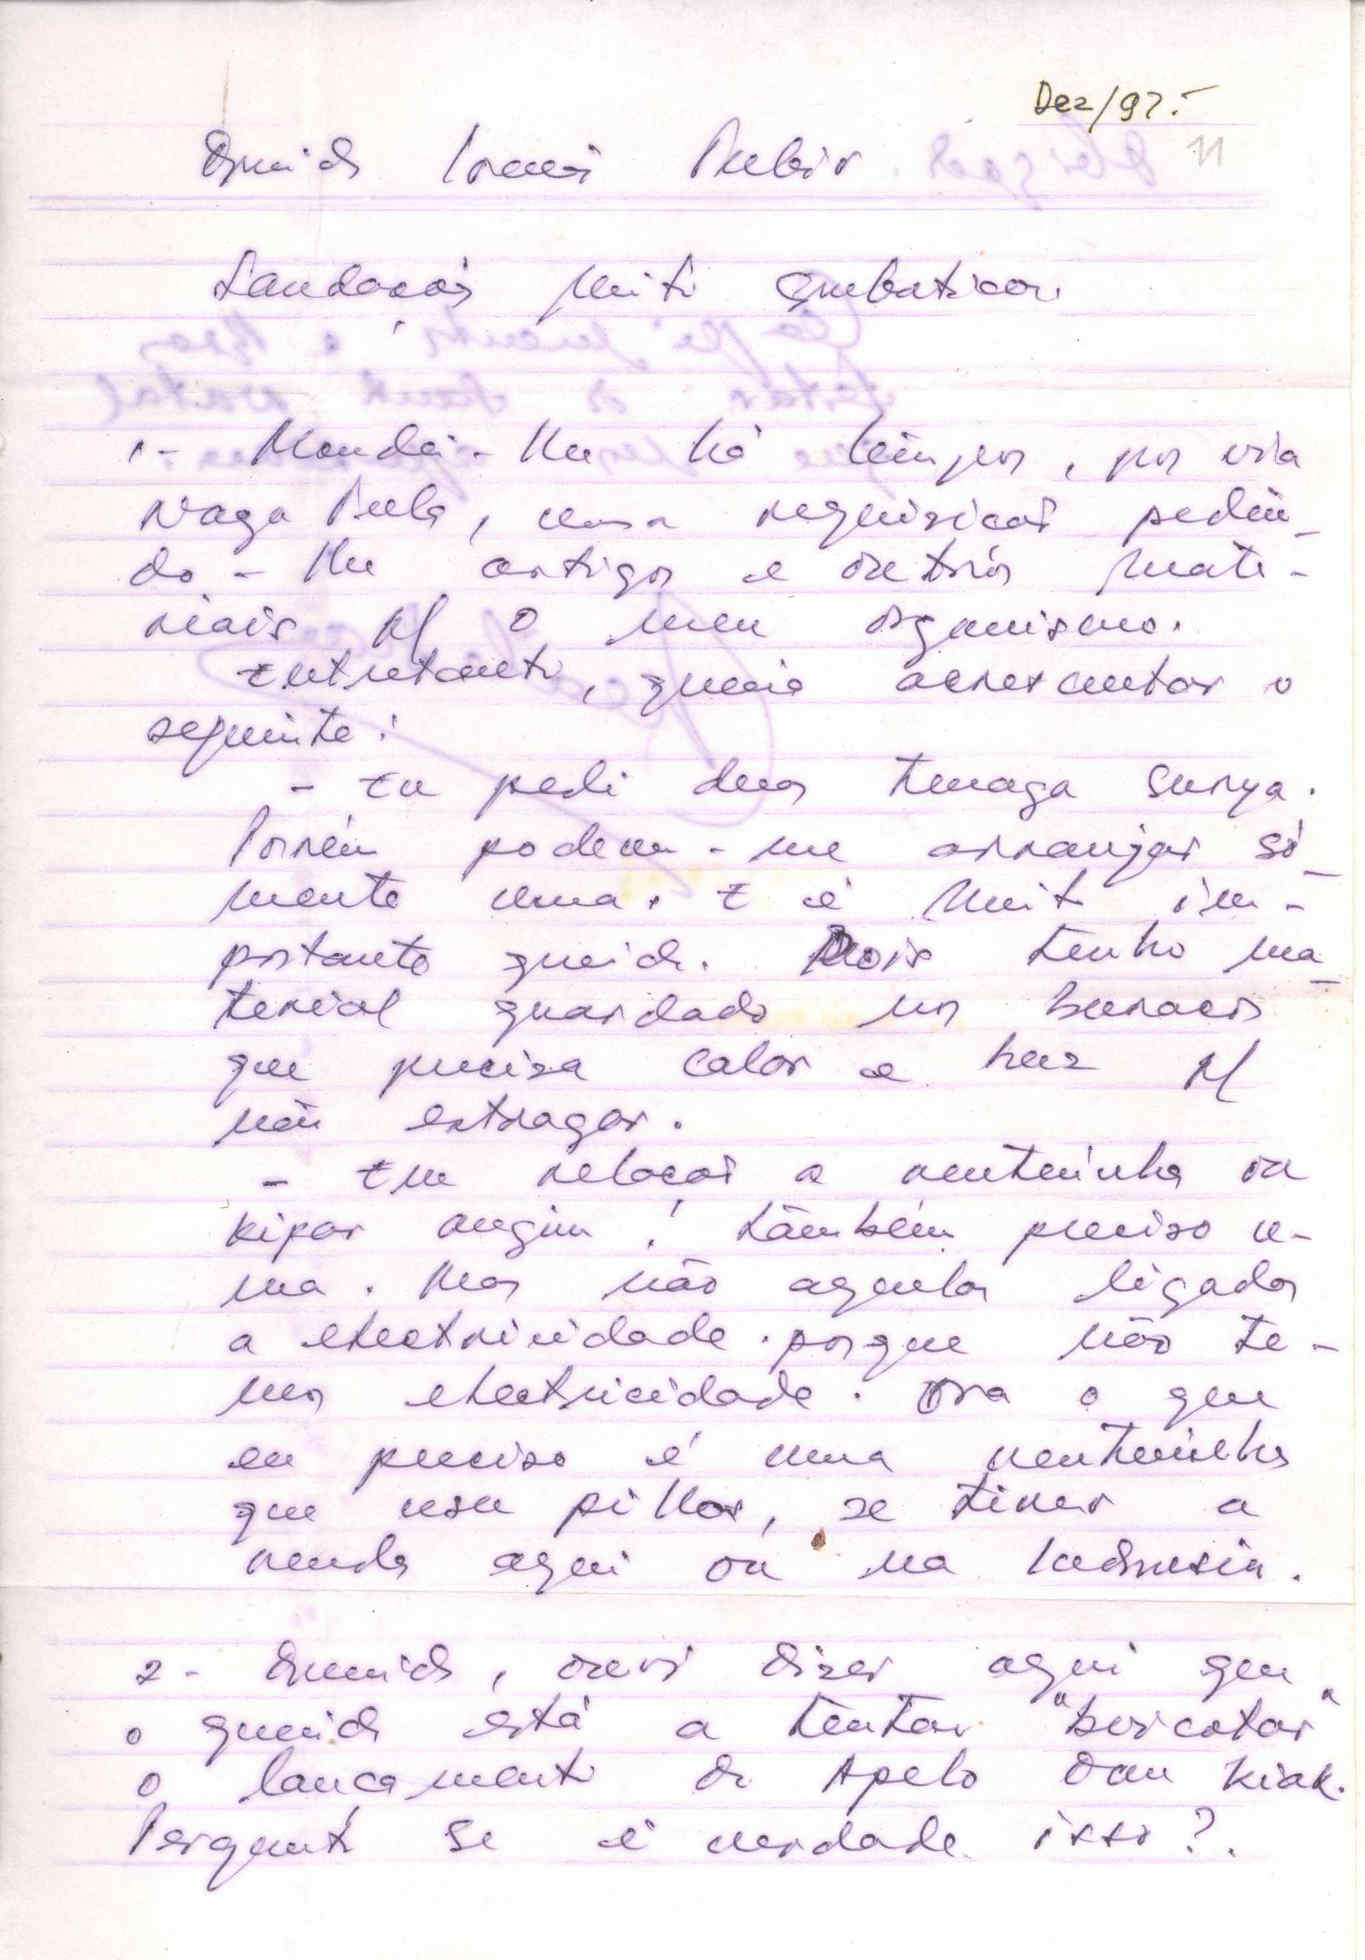 Dez/97.-
11
Querido Irmão Rubir
Saudações muito combativas.
1- Mandei-lhe há tempos, por via
Naga Bula, uma requisição pedin-
do-lhe artigos e outros mate-
riais p/ o meu organismo.
Entretanto, queria acrescentar o
seguinte:
- Eu pedi duas tenaga surya.
Porém podem-me arranjar só-
mente uma. E é muito im-
portante querido. Pois tenho ma-
terial guardado nos buracos
que precisa calor e luz p/
não estragar.
- Em relação a ventoinha ou
kipas angin! Também preciso u-
ma. Mas não aquelas ligadas
a electricidade porque não te-
mos electricidade. Ora o que
eu preciso é uma ventoinha
que usa pilhas, se tiver a
venda aqui ou na Indonesia.
2- Querido, ouvi dizer aqui que
o querido está a tentar "boicotar"
o lançamento do Apelo Dau Kiak.
Pergunto se é verdade isso?.